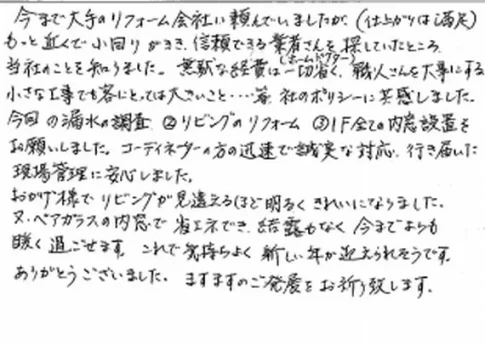 今まで大手のリフォーム会社に頼んでいましたが、(仕上がりは満足)
もっと近くで小回りがきき、信頼できる業者さんを探していたところ
当社のことを知りました。無駄な経費は一切省く、職人さんを大事にする
(ホームドクター)
小さな工事でも客にとっては大きいこと…等、社のポリシーに共感しました。
今回 の漏水の調査 ②リビングのリフォーム ③1F全ての内窓設置を
お願いしました。コーディネーターの方の迅速で誠実な対応、行き届いた
現場管理に安心しました。
おかげ様でリビングが見違えるほど明るくきれいになりました。
又、ペアガラスの内窓で省エネでき、結露もなく今までよりも
暖く過ごせます。これで気持ちよく新しい年が迎えられそうです。
ありがとうございました。ますますのご発展をお祈り致します。